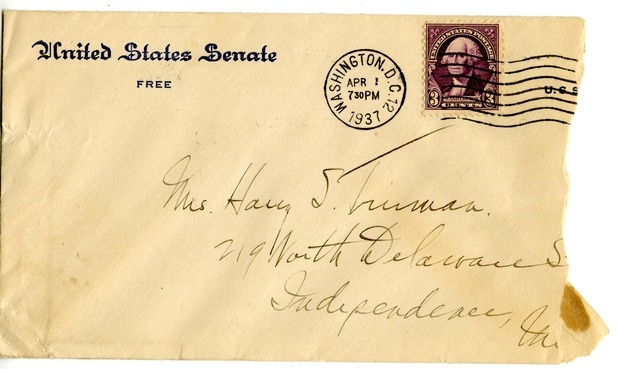 United States Senate
FREE
WASHINGTON, D.C. 12
APR 1
7 30 PM
1937
UNITED STATES POSTAGE
3 3
U.S.S
Mrs. Harry S. Truman.
219 North Delaware S
Independence,